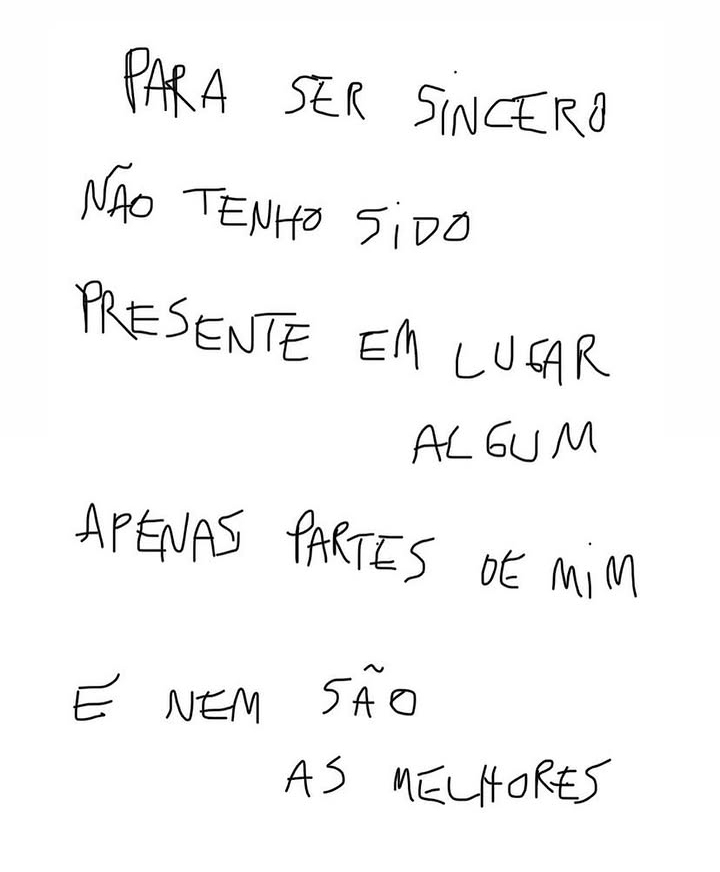 PARA SER SINCERO
NÃO TENHO SIDO
PRESENTE EM LUGAR
ALGUM
APENAS PARTES DE MIM
E NEM SÃO
AS MELHORES